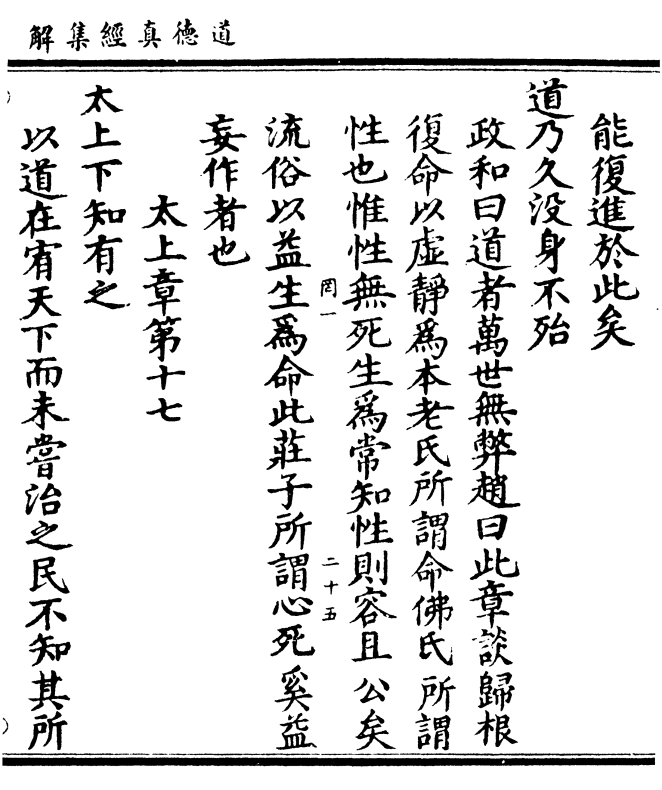 道德真經集解
能復進於此矣
道乃久没身不殆
政和曰道者萬世無弊趙曰此章談歸根
復命以虛靜爲本老氏所謂命佛氏所謂
性也惟性無死生爲常知性則容且公矣
罔一
二十五
流俗以益生爲命此莊子所謂心死奚益
妄作者也
太上章第十七
太上下知有之
以道在宥天下而未嘗治之民不知其所